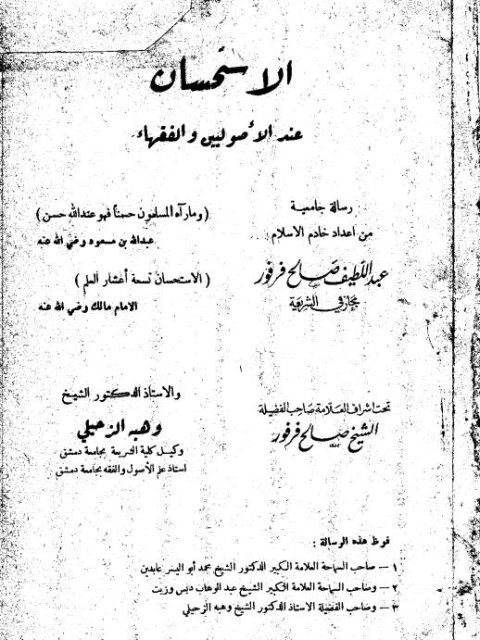 الاستحسان
عند الأصوليين والفقهاء
رسالة جامعية
من اعداد خادم الاسلام
عبد اللطيف صالح فرفور
مجاز في الشريعة
(وما رآه المسلمون حسناً فهو عند الله حسن)
عبد الله بن مسعود رضي الله عنه
(الاستحسان تسعة أعشار العلم)
الامام مالك رضي الله عنه
تحت اشراف العلامة صاحب الفضيلة
الشيخ صالح فرفور
والاستاذ الدكتور الشيخ
وهبه الزحيلي
وكيل كلية الشريعة بجامعة دمشق
استاذ علم الأصول والفقه بجامعة دمشق
قرظ هذه الرسالة :
١ — صاحب السماحة العلامة الكبير الدكتور الشيخ محمد أبو اليسر عابدين
٢ — وصاحب السماحة العلامة الكبير الشيخ عبد الوهاب دبس وزيت
٣ — وصاحب الفضيلة الاستاذ الدكتور الشيخ وهبه الزحيلي